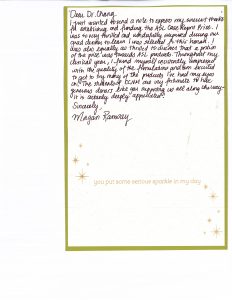 Dear Dr. Chang,
I just wanted to send a note to express my sincere thanks
for establishing and funding the ASC Case Report Prize. I
was so very thrilled and wholeheartedly surprised during our
award dinner to learn I was selected for this honor. I
was also equally as thrilled to discover that a portion
of the prize was towards ASC products. Throughout my
clinical year, I found myself constantly impressed
with the quality of the formulations and am excited
to get to try many of the products I've had my eyes
on! The students of TCM are very fortunate to have
generous donors like you supporting us all along the way-
it is certainly deeply appreciated!
Sincerely,
Megan Ramsey
you put some serious sparkle in my day